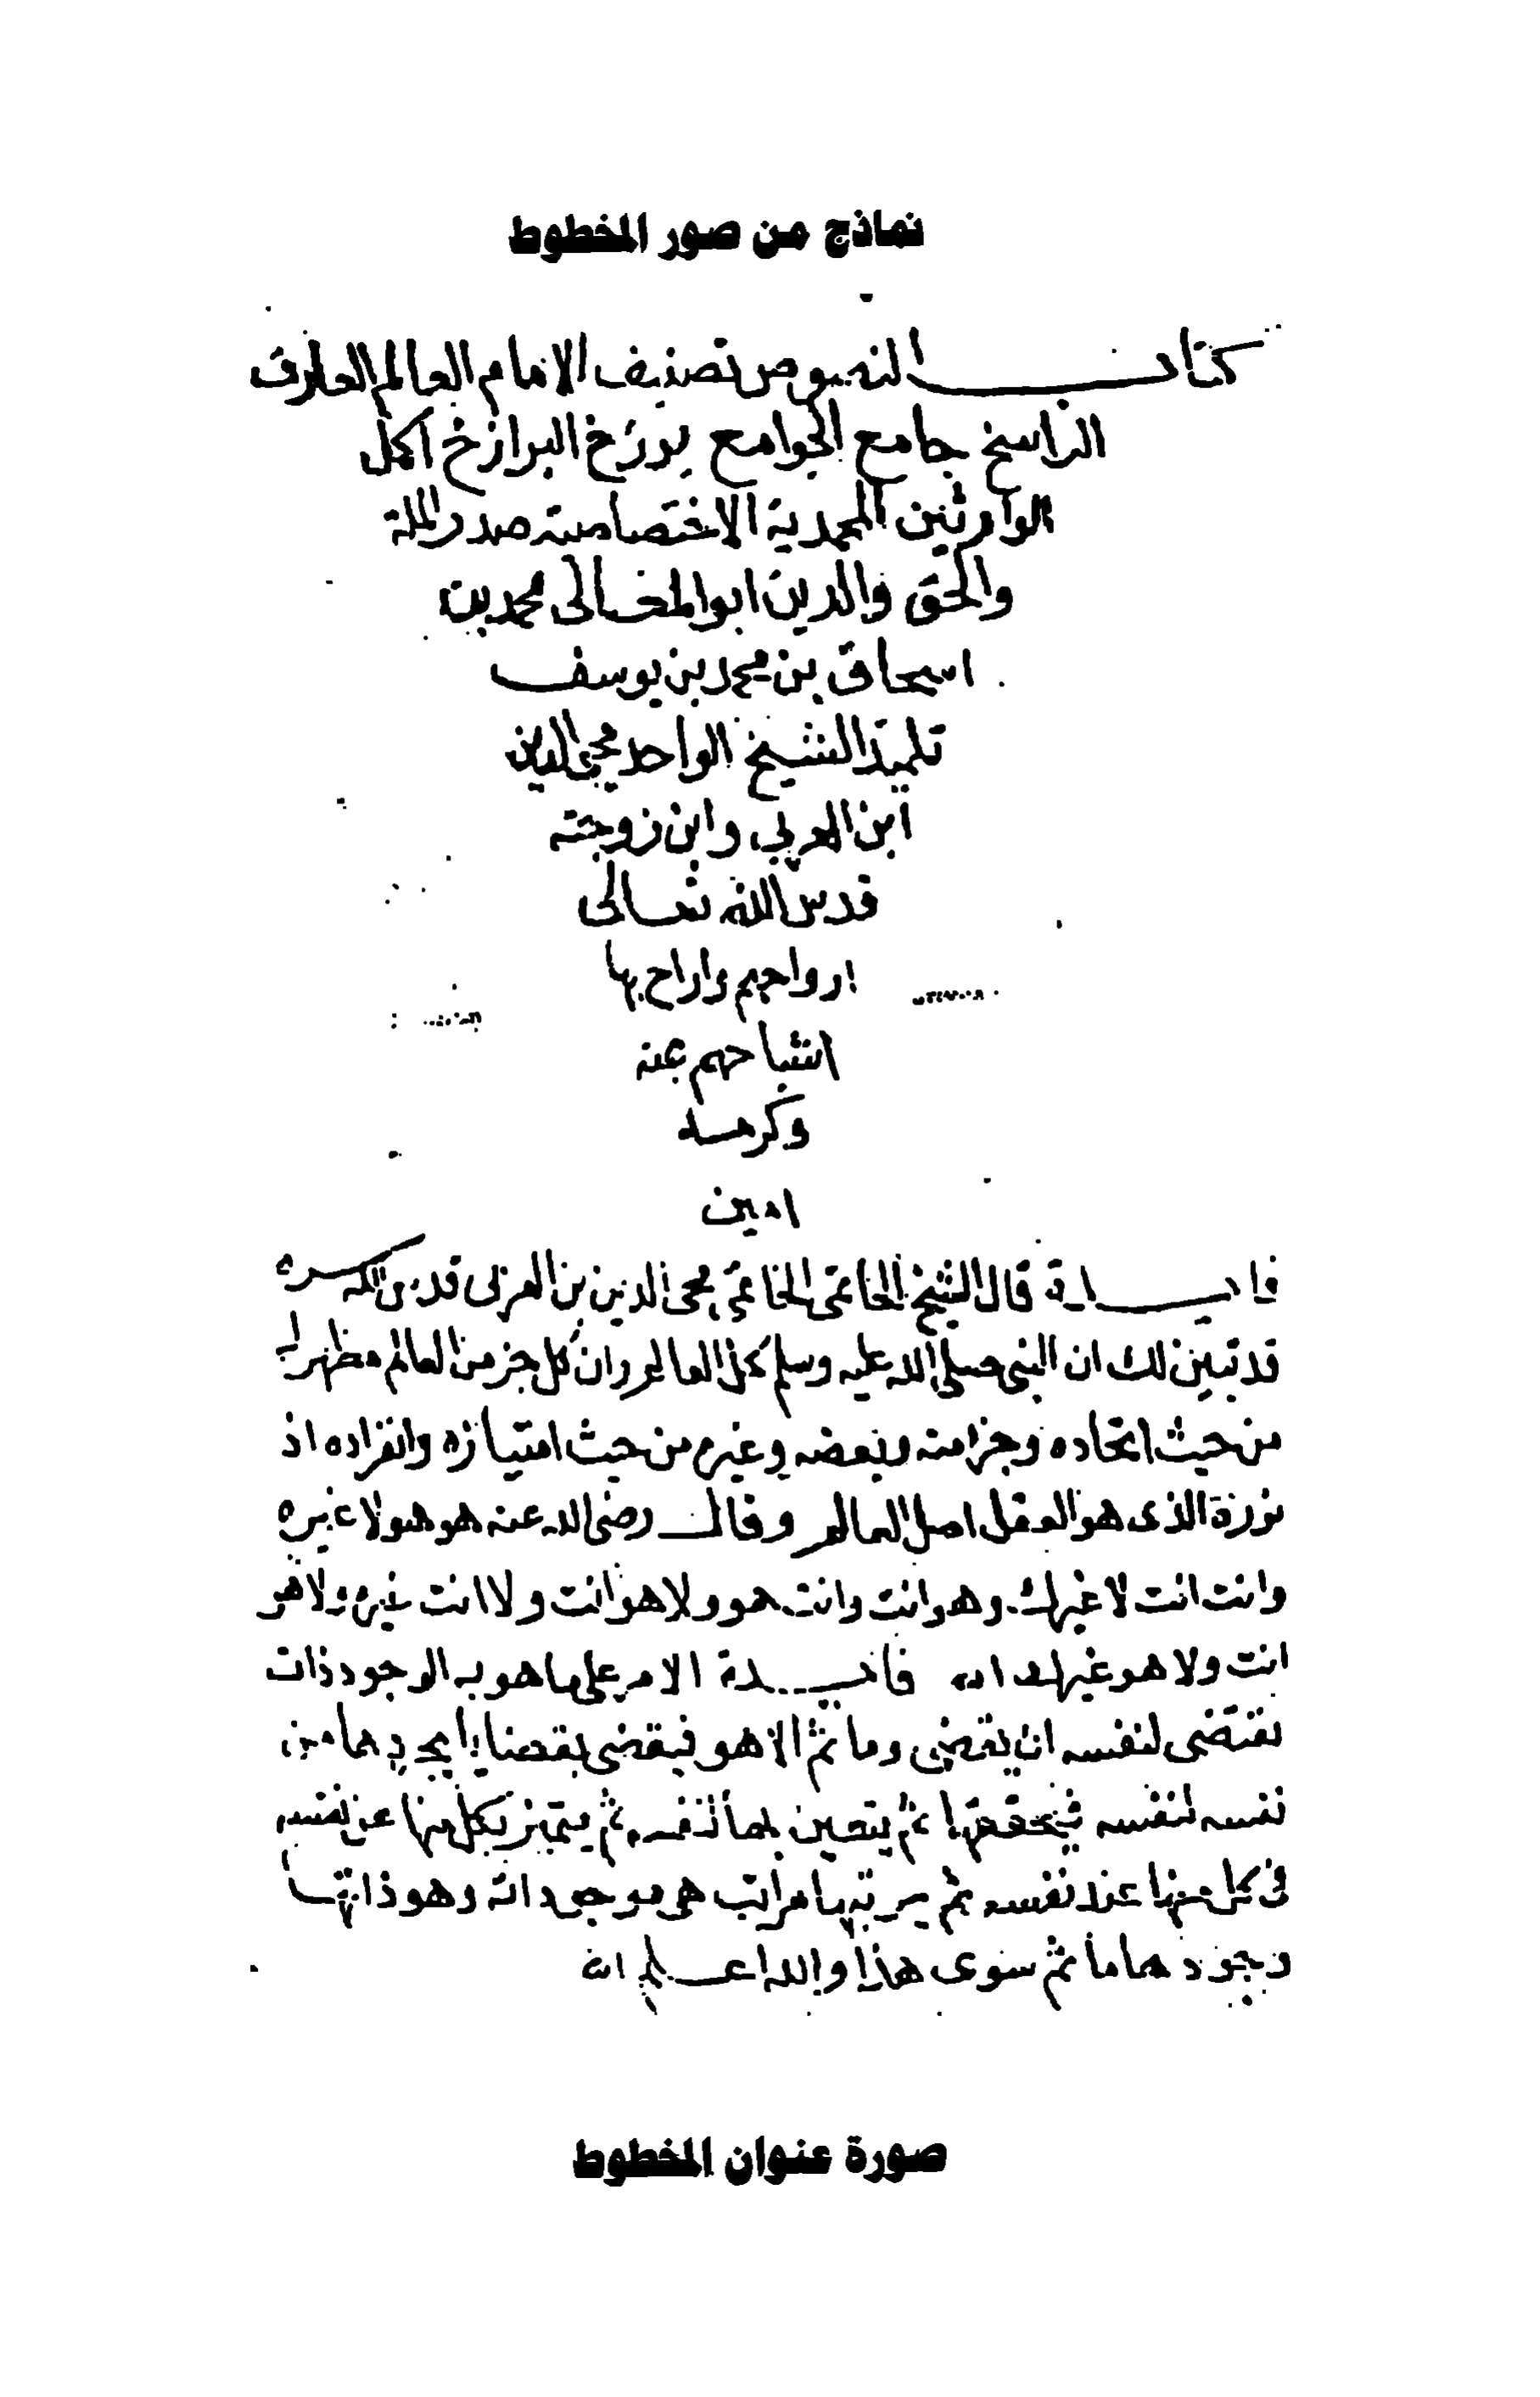 نماذج من صور المخطوط
كتاب النصوص تصنيف الامام العالم العارف
الراسخ جامع الجوامع برزخ البرازخ اكمل
الوارثين المحمدية الاختصاصية صدر الملة
والحق والدين ابو المعالى محمد بن
اسحاق بن محمد بن يوسف
تلميذ الشيخ الواحد محيى الدين
ابن العربي وابن زوجته
قدس الله تعالى
ارواحهم واراح بها
اشباحهم بمنه
وكرمه
امين
فايدة قال الشيخ الخاتمى محيى الدين بن العربى قدس الله سره
قد تبين لك ان النبى صلى الله عليه وسلم كل العالم وان كل جز من العالم مظهر له
من حيث اتحاده وجزا منه وبعضه وغيره من حيث امتيازه وانفراده اذ
نوره الذى هو العقل اصل العالم وقال رضى الله عنه هو هو لا غيره
وانت انت لا غيرك وهو انت وانت هو ولا هو انت ولا انت غيره ولا هو
انت ولا هو غيرك فايدة الامر على ما هو به الوجود ذات
تقتضى لنفسه ان يقضى وما ثم الا هو فيقضى بقضايا يجدها من
نفسه لنفسه فيحققها ثم يتعين بها لنفسه ثم يتميز بكل منها عن نفسه
فى كل منها عند نفسه ثم يرتبها مراتب هى موجوداته وهو ذاتها
وجودها ما ثم سوى هذا والله اعلم
صورة عنوان المخطوط